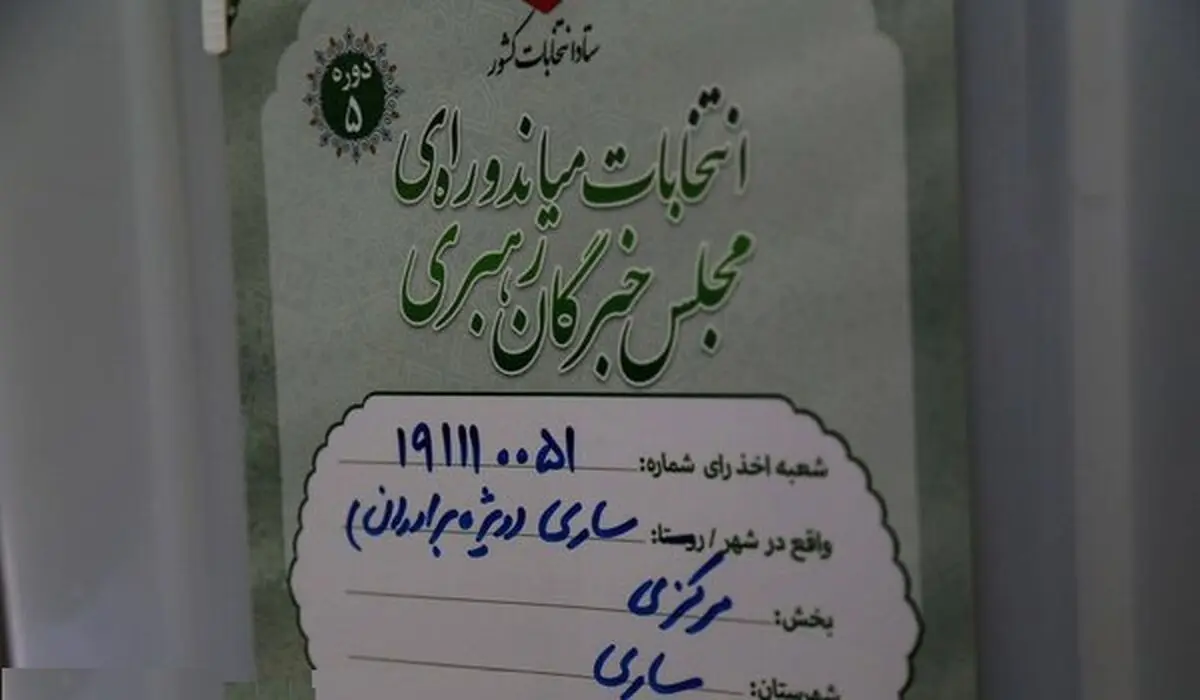 ستاد انتخابات کشور
دوره
۵
انتخابات میاندوره‌ای
مجلس خبرگان رهبری
شعبه اخذ رای شماره: ۱۹۱۱۱۰۰۵۱
واقع در شهر / روستا: ساری (ویژه برادران)
بخش: مرکزی
شهرستان: ساری